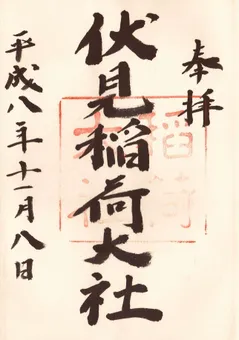 奉拝
伏見稲荷大社
平成八年十一月八日